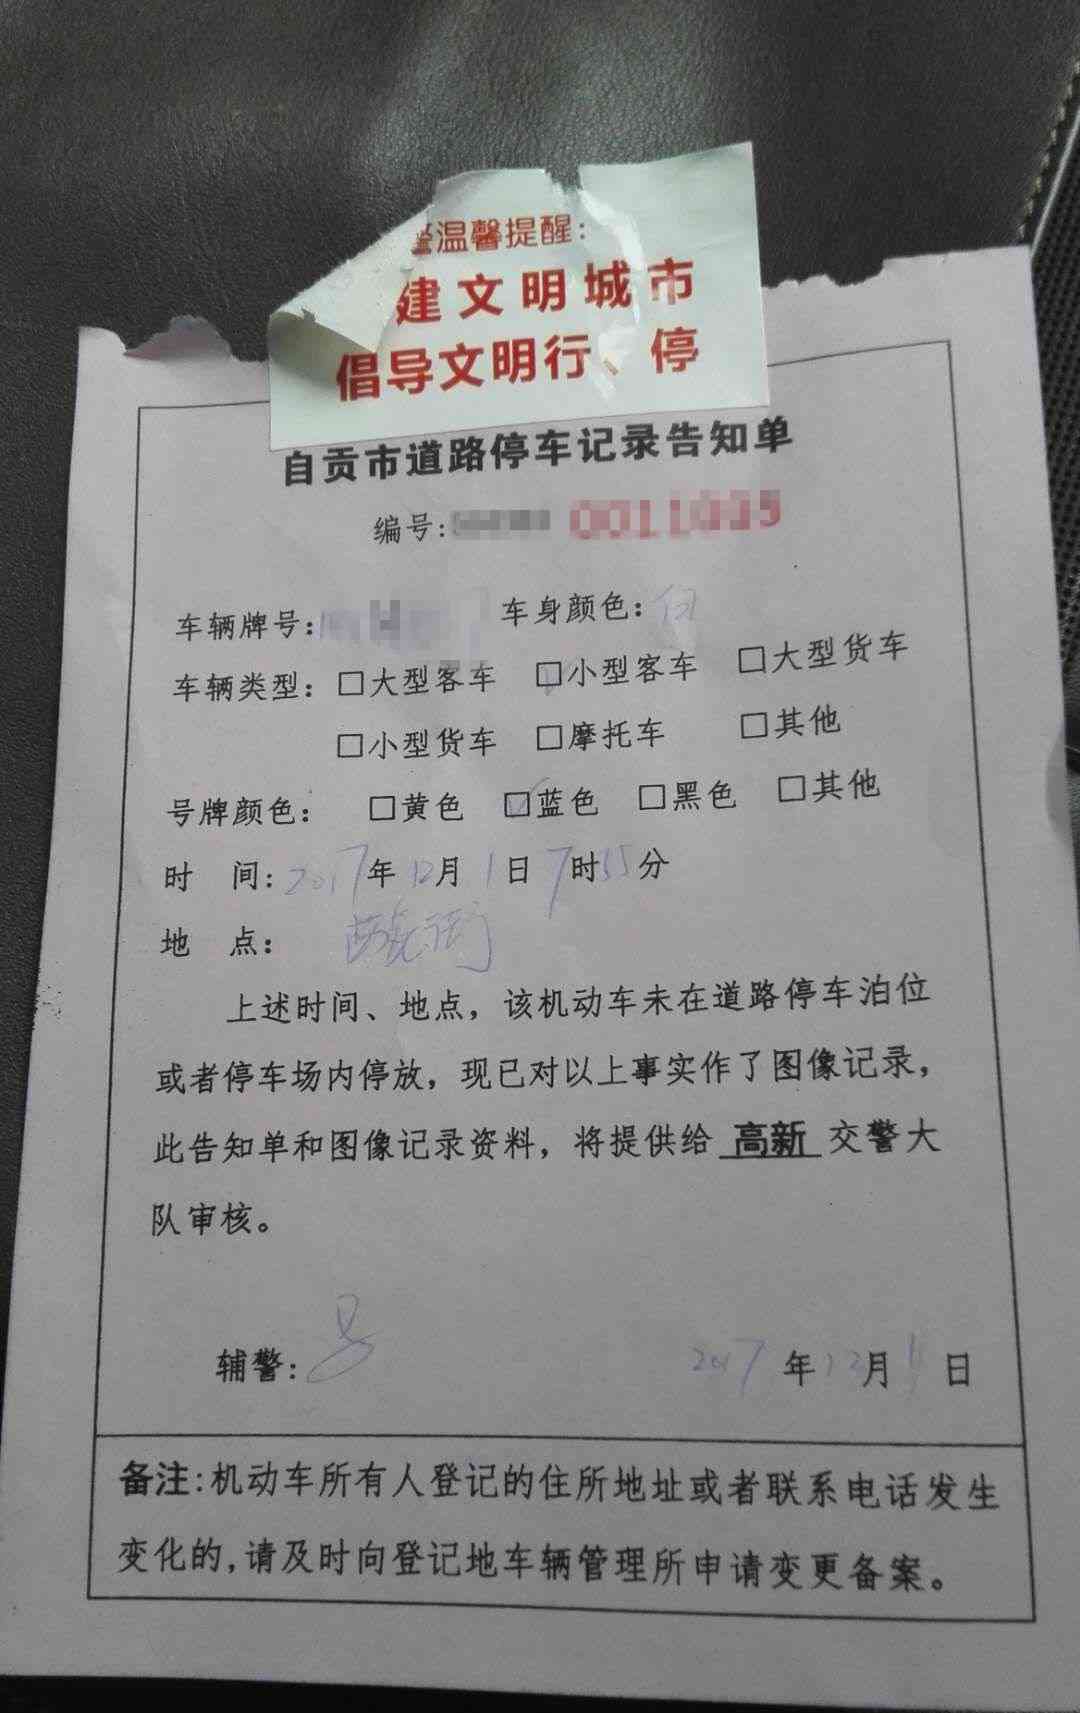 温馨提醒:
建文明城市
倡导文明行、停
自贡市道路停车记录告知单
编号:
车辆牌号: 车身颜色:白
车辆类型: □大型客车 ☑小型客车 □大型货车
□小型货车 □摩托车 □其他
号牌颜色: □黄色 ☑蓝色 □黑色 □其他
时 间: 2017年12月1日7时55分
地 点:
上述时间、地点，该机动车未在道路停车泊位
或者停车场内停放，现已对以上事实作了图像记录，
此告知单和图像记录资料，将提供给 高新 交警大
队审核。
辅警: 2017年12月 日
备注:机动车所有人登记的住所地址或者联系电话发生
变化的,请及时向登记地车辆管理所申请变更备案。